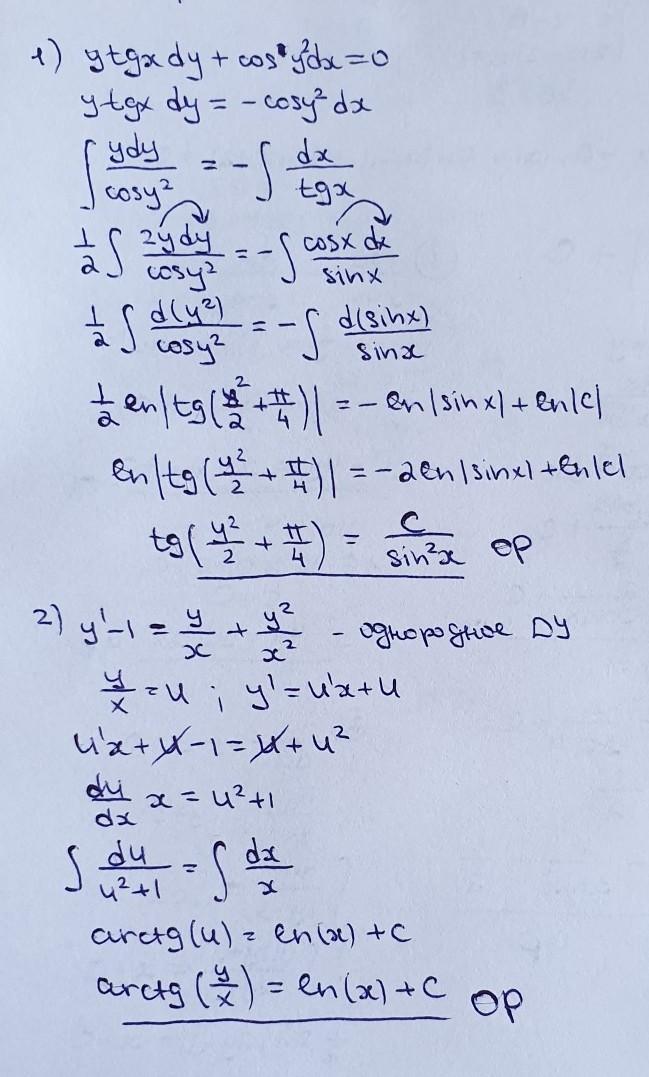 1) y tgx dy + cos y²dx = 0
y tgx dy = - cosy² dx
∫ ydy/cosy² = - ∫ dx/tgx
1/2 ∫ 2ydy/cosy² = - ∫ cosx dx/sinx
1/2 ∫ d(y²)/cosy² = - ∫ d(sinx)/sinx
1/2 ln|tg(y²/2 + π/4)| = - ln|sinx| + ln|c|
ln|tg(y²/2 + π/4)| = -2ln|sinx| + ln|c|
tg(y²/2 + π/4) = C/sin²x ОР
2) y' - 1 = y/x + y²/x² - однородное ДУ
y/x = u ; y' = u'x + u
u'x + u - 1 = u + u²
du/dx x = u² + 1
∫ du/u²+1 = ∫ dx/x
arctg(u) = ln(x) + C
arctg(y/x) = ln(x) + C ОР